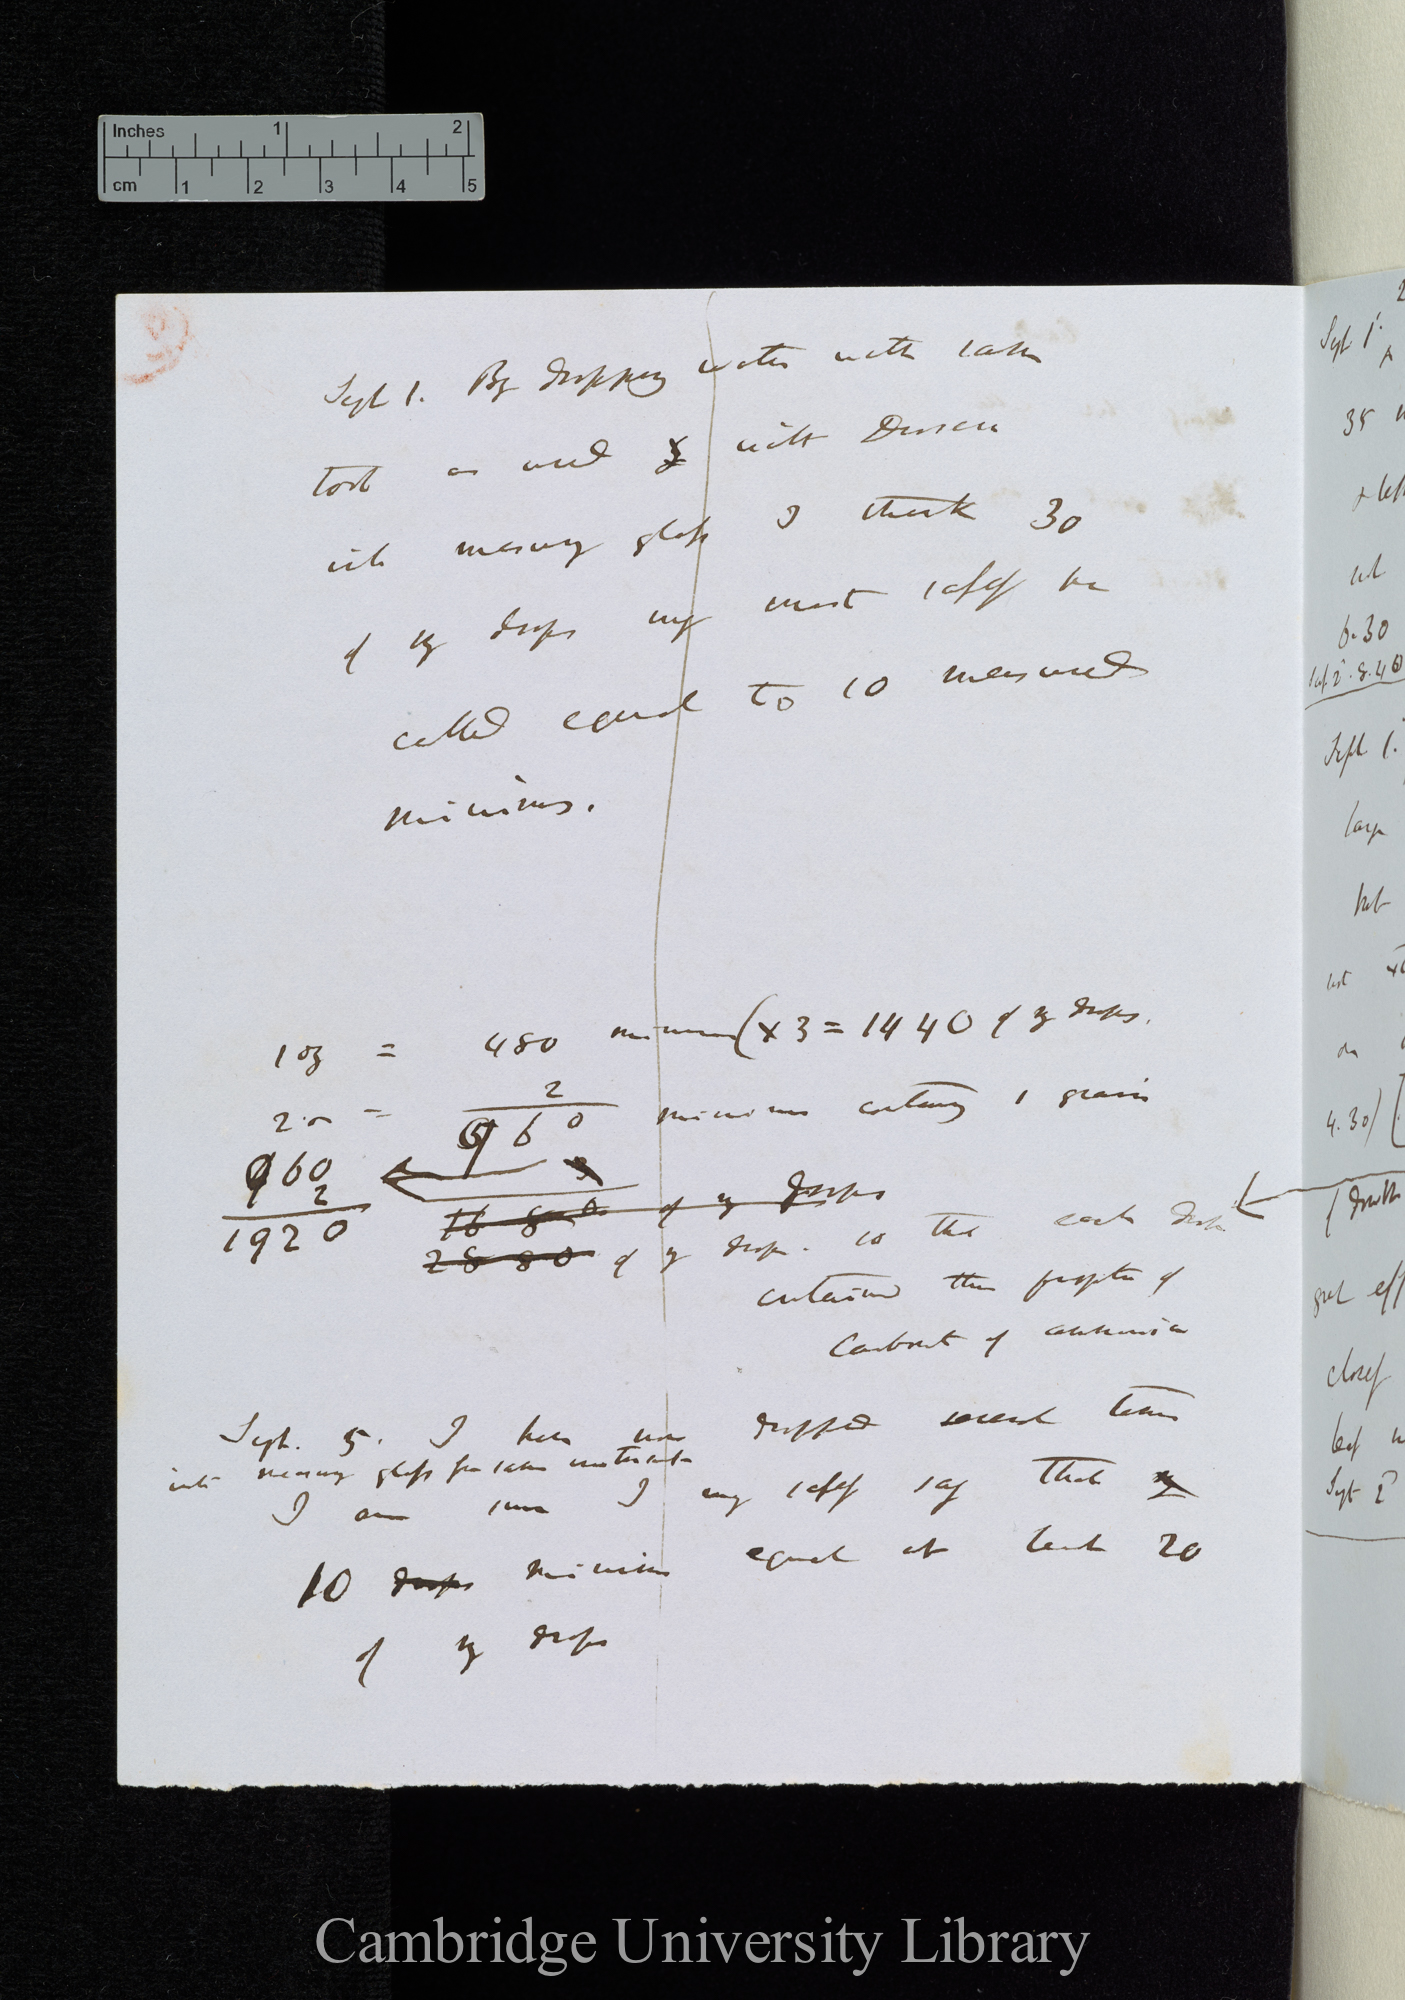 Inches 1 2
cm 1 2 3 4 5
Sept 1. By dropping water with same
tool as used with Drosera
into measuring glass I think 30
of my drops may most safely be
called equal to 10 measured
minims.
1 oz = 480 minims (x 3 = 1440 of my drops.
2
2 oz = 960 minims containing 1 grain
960
2
1920
3
16 8 0 of my drops
2880 of my drops. so that each drop
contained this proportion of
Carbonate of ammonia
Sept. 5. I have now dropped several times
into measuring glass same
I am sure I may safely say that my
10 drops minims equal at least 20
of my drops
2
Sept 1.
35
+ left
6.30
Sept. 2. 8.40
Sept 1.
large
but
on
4.30)
great eff
closely
leaf
Sept 2
Cambridge University Library